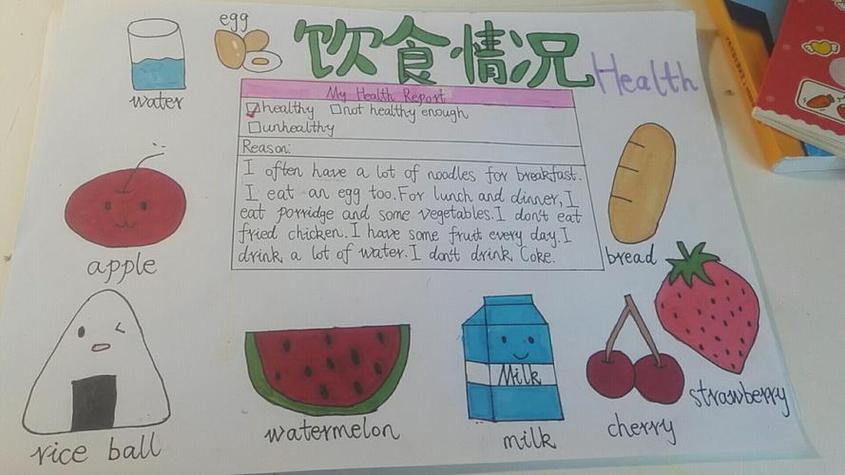 egg
饮食情况
Health
water
My Health Report
healthy not healthy enough
unhealthy
Reason:
I often have a lot of noodles for breakfast.
I eat an egg too. For lunch and dinner, I
eat porridge and some vegetables. I don't eat
fried chicken. I have some fruit every day. I
drink a lot of water. I don't drink Coke.
bread
apple
strawberry
Milk
rice ball
watermelon
milk
cherry